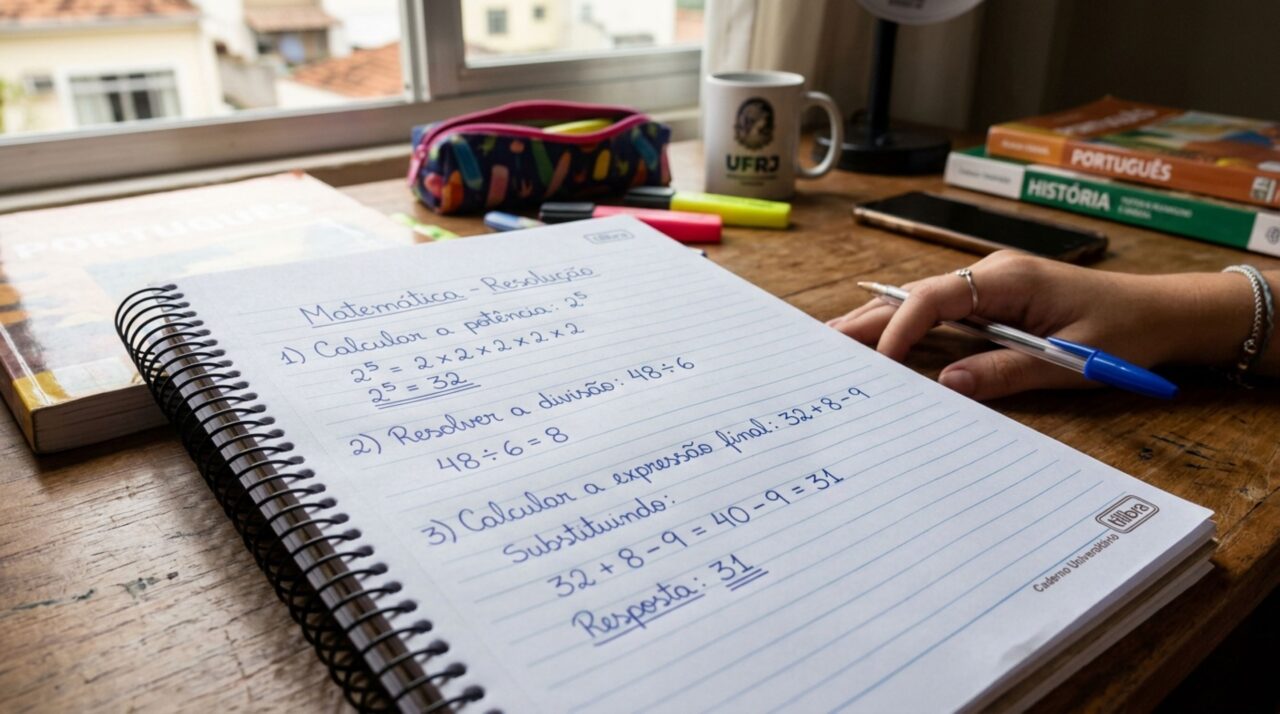 PORTUGUÊS
UFRJ
PORTUGUÊS
HISTÓRIA
tilibra
Matemática - Resolução
1) Calcular a potência: 2⁵
2⁵ = 2 × 2 × 2 × 2 × 2
2⁵ = 32
2) Resolver a divisão: 48 ÷ 6
48 ÷ 6 = 8
3) Calcular a expressão final: 32 + 8 - 9
Substituindo:
32 + 8 - 9 = 40 - 9 = 31
Resposta: 31
tilibra
Caderno Universitário